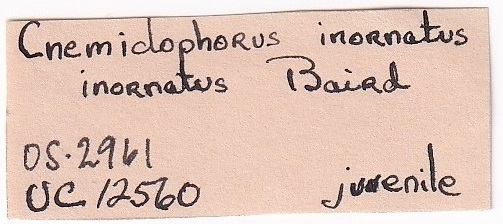 Cnemidophorus inornatus
inornatus Baird
OS·2961
UC 12560 juvenile